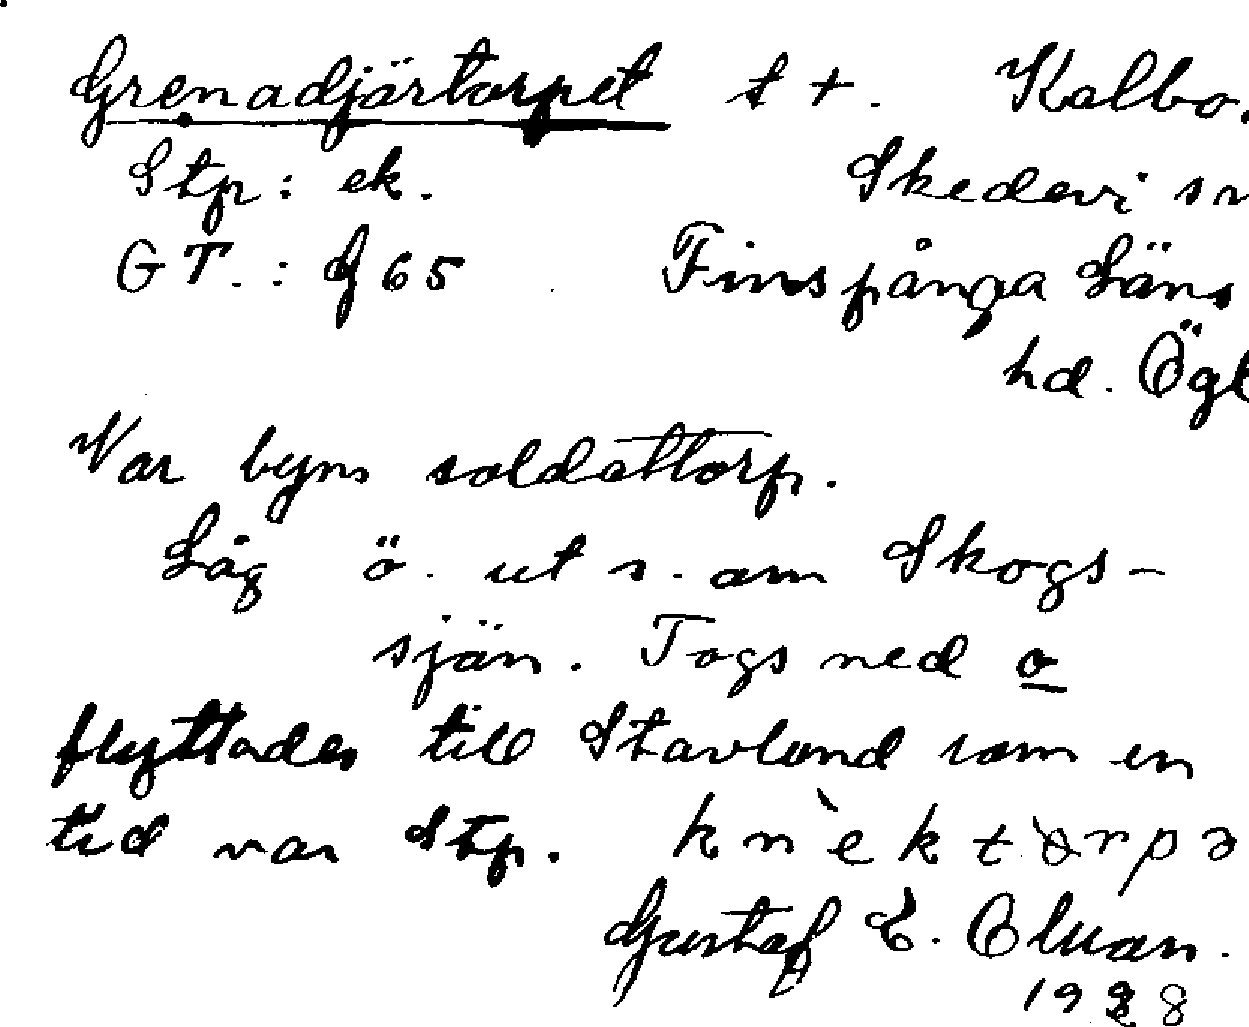 Grenadjärtorpet s t. Kalbo.
Stp: ek. Skedevi sn
GT.: g 65 Finspånga Läns
hd. Ögl
Var byns soldattorp.
Låg ö. ut s. om Skogs-
sjön. Togs ned o
flyttades till Stavlund som en
tid var Stp. knèktòrpə
Gustaf E.
1928